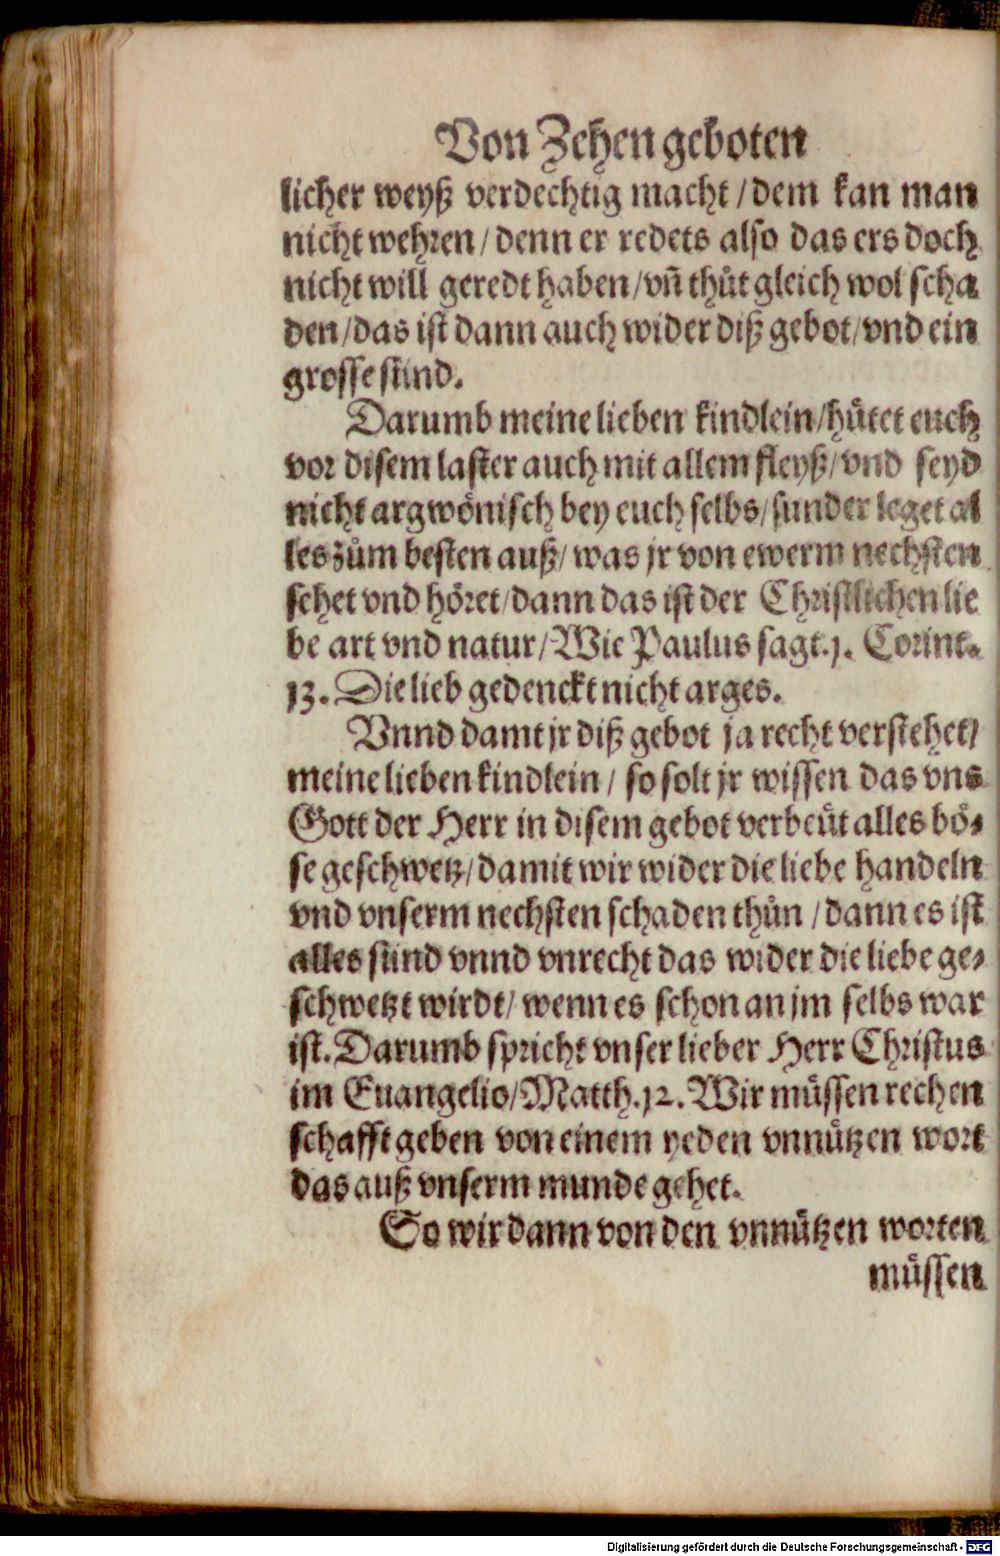 Von Zehen geboten
licher weyß verdechtig macht / dem kan man
nicht wehren / denn er redets also das ers doch
nicht will geredt haben / vñ thůt gleich wol scha
den / das ist dann auch wider diß gebot / vnd ein
grosse sünd.
Darumb meine lieben kindlein / hůtet euch
vor disem laster auch mit allem fleyß / vnd seyd
nicht argwönisch bey euch selbs / sunder leget al
les zům besten auß / was jr von ewerm nechsten
sehet vnd höret / dann das ist der Christlichen lie
be art vnd natur / Wie Paulus sagt. 1. Corint.
13. Die lieb gedenckt nicht arges.
Vnnd damt jr diß gebot ja recht verstehet /
meine lieben kindlein / so solt jr wissen das vns
Gott der Herr in disem gebot verbeüt alles bö⸗
se geschwetz / damit wir wider die liebe handeln
vnd vnserm nechsten schaden thůn / dann es ist
alles sünd vnnd vnrecht das wider die liebe ge⸗
schwetzt wirdt / wenn es schon an jm selbs war
ist. Darumb spricht vnser lieber Herr Christus
im Euangelio / Matth. 12. Wir müssen rechen
schafft geben von einem yeden vnnützen wort
das auß vnserm munde gehet.
So wir dann von den vnnützen worten
müssen
Digitalisierung gefördert durch die Deutsche Forschungsgemeinschaft - DFG